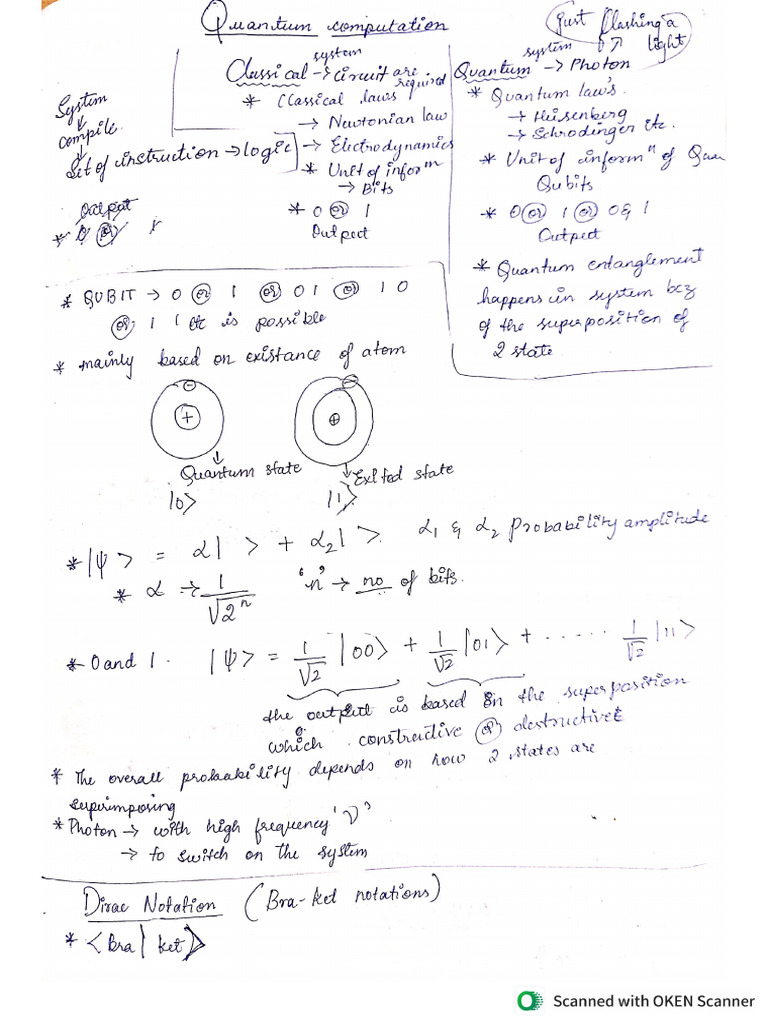 Quantum computation
Just flashing a light
System
↓
compile
↓
Set of instruction → logic
Output
* 0 (or) 1
system
Classical → circuit are required
* Classical laws
→ Newtonian law
→ Electrodynamics
* Unit of inform^n
→ Bits
* 0 (or) 1
Output
system
Quantum → Photon
* Quantum law's
→ Heisenberg
→ Schrodinger etc.
* Unit of inform^n of Qua
Qubits
* 0 (or) 1 (or) 0 & 1
Output
* Quantum entanglement
happens in system bcz
of the superposition of
2 state
* QUBIT → 0 (or) 1 (or) 01 (or) 10
(or) 11 etc is possible
* mainly based on existance of atom
- -
+ +
Quantum state Exited state
|0> |1>
* |ψ> = α| > + α₂| >. α₁ & α₂ Probability amplitude
* α → 1/√2ⁿ 'n' → no of bits.
* 0 and 1. |ψ> = 1/√2 |00> + 1/√2 |01> + ...... 1/√2 |11>
the output is based on the superposition
which constructive (or) destructive
* The overall probability depends on how 2 states are
superimposing
* Photon → with high frequency 'ν'
→ to switch on the system
Dirac Notation (Bra-ket notations)
* <Bra| ket>
Scanned with OKEN Scanner